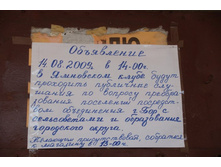 Объявление
14.08.2009 в 14.00ч.
В Ямновском клубе будут
проходить публичные слу-
шания по вопросу преобра-
зования поселений посредст-
вом объединения г. Бор с
сельсоветами и образования
городского округа.
собраться
к магазину 13-00ч.